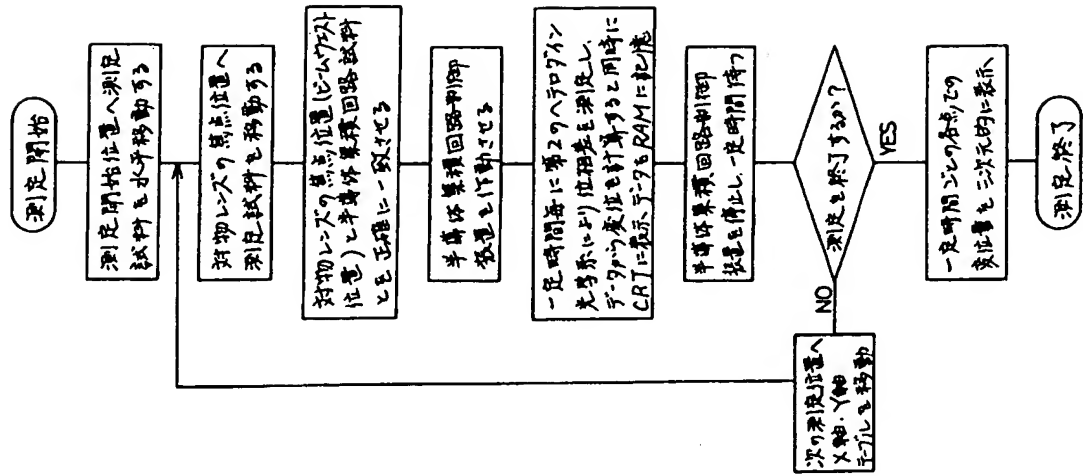 測定開始
測定開始位置へ測定
試料を水平移動する
対物レンズの焦点位置へ
測定試料を移動する
対物レンズの焦点位置(ビームウエスト
位置)と半導体集積回路試料
とを正確に一致させる
半導体集積回路制御
装置を作動させる
一定時間毎に第2のヘテロダイン
光学系により位相差を測定し、
データから変位を計算すると同時に
CRTに表示、データをRAMに記憶
半導体集積回路制御
装置を停止し、一定時間待つ
測定を終了するか?
NO
YES
次の測定位置へ
X軸、Y軸
テーブルを移動
一定時間ごとの各点での
変位量を二次元的に表示
測定終了